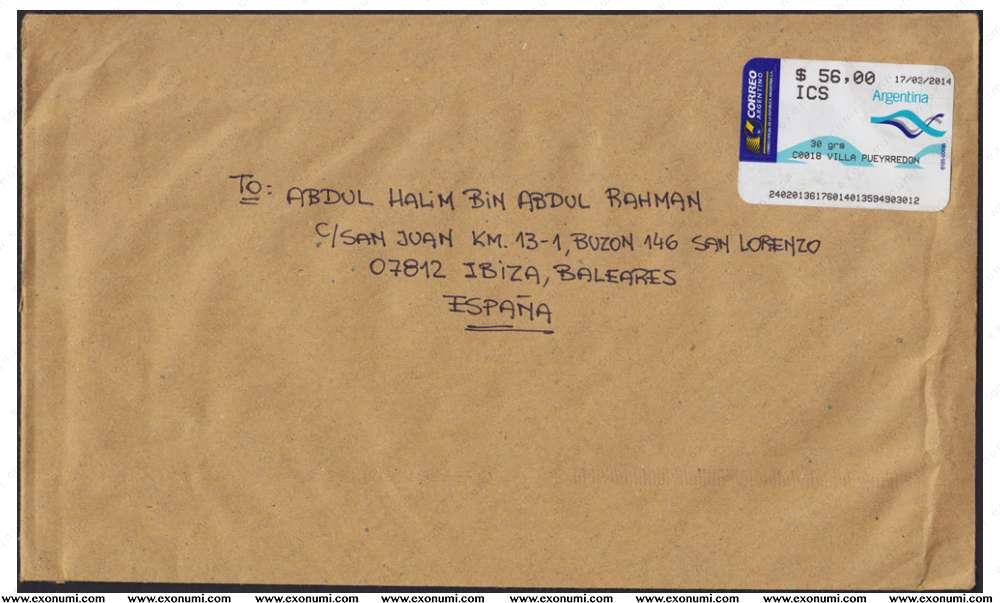 $ 56,00
17/02/2014
ICS
Argentina
CORREO
ARGENTINO
30 grs
C0018 VILLA PUEYRREDON
24020136176014013594903012
TO: ABDUL HALIM BIN ABDUL RAHMAN
C/SAN JUAN KM. 13-1, BUZON 146 SAN LORENZO
07812 IBIZA, BALEARES
ESPAÑA
www.exonumi.com www.exonumi.com www.exonumi.com www.exonumi.com www.exonumi.com www.exonumi.com www.exonumi.com www.exonumi.com